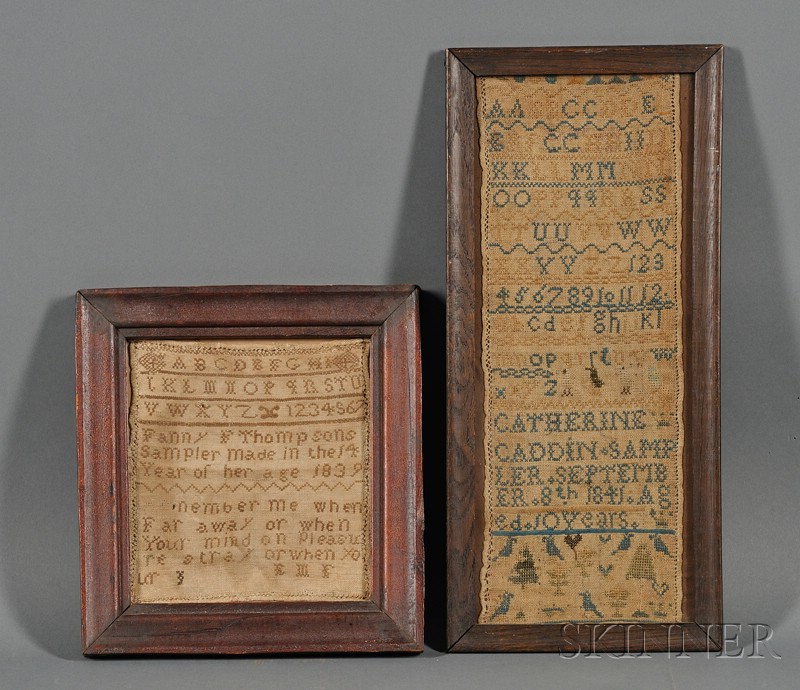 A B C D E F G H I
I K L M N O P Q R S T U
V W X Y Z 1 2 3 4 5 6 7
Fanny F Thompsons
Sampler made in the 14
Year of her age 1839
member me when
Far away or when
Your mind on Pleasu
re stray or when yo
ur
AA CC E
E CC II
KK MM
OO qq SS
UU WW
YY ZZ 123
4 5 6 7 8 9 10 11 12
cd ef gh kl
op q r s t u w
x z
CATHERINE
CADDIN SAMP
LER SEPTEMB
ER 8th 1841 Ag
ed 10 years
SKINNER